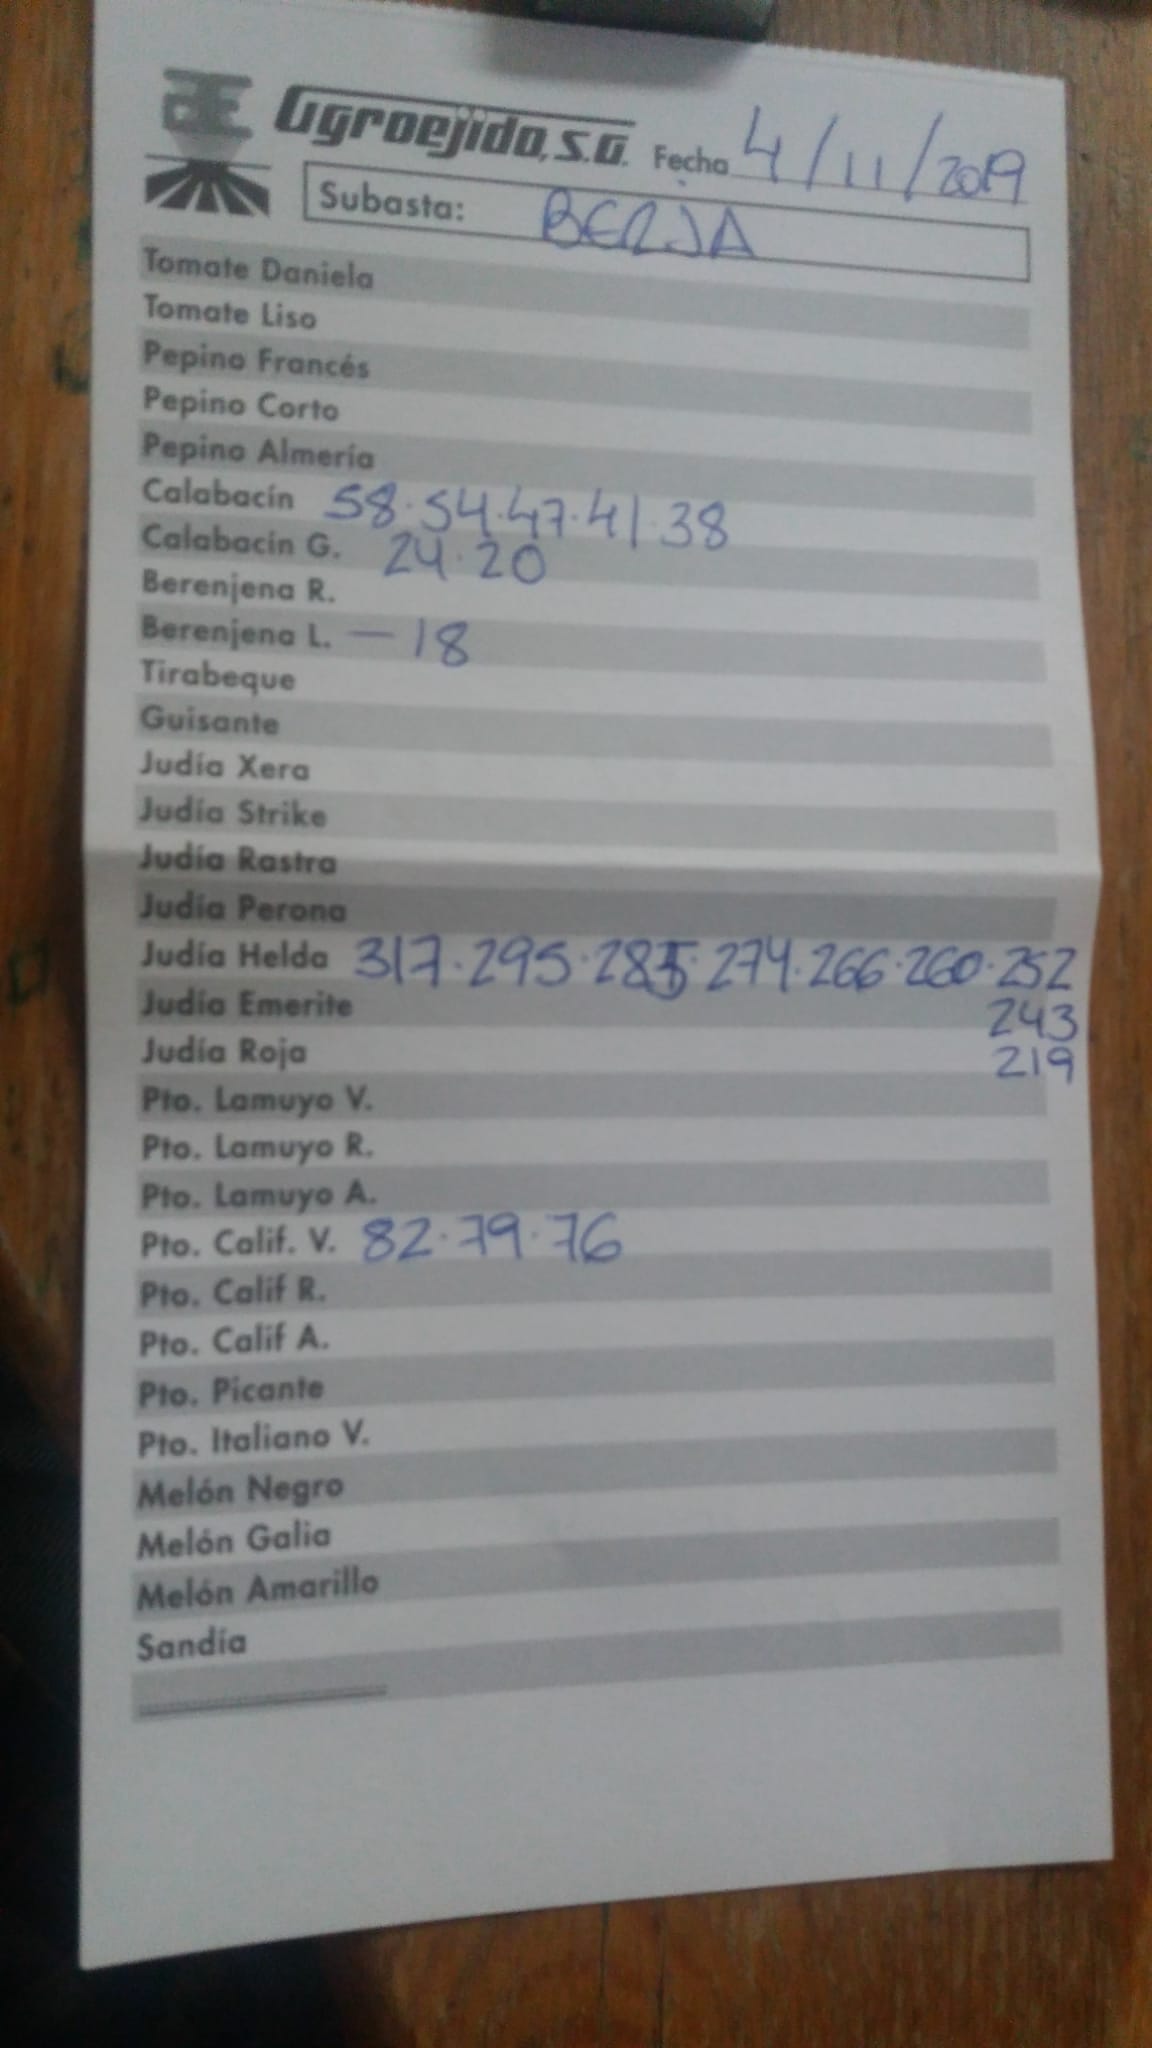 Agroejido, S.A. Fecha 4/11/2019
Subasta: BERJA
Tomate Daniela
Tomate Liso
Pepino Francés
Pepino Corto
Pepino Almería
Calabacín 58·54·47·41·38
Calabacín G. 24·20
Berenjena R.
Berenjena L. — 18
Tirabeque
Guisante
Judía Xera
Judía Strike
Judía Rastra
Judía Perona
Judía Helda 317·295·285·274·266·260·252
Judía Emerite 243
Judía Roja 219
Pto. Lamuyo V.
Pto. Lamuyo R.
Pto. Lamuyo A.
Pto. Calif. V. 82·79·76
Pto. Calif R.
Pto. Calif A.
Pto. Picante
Pto. Italiano V.
Melón Negro
Melón Galia
Melón Amarillo
Sandía